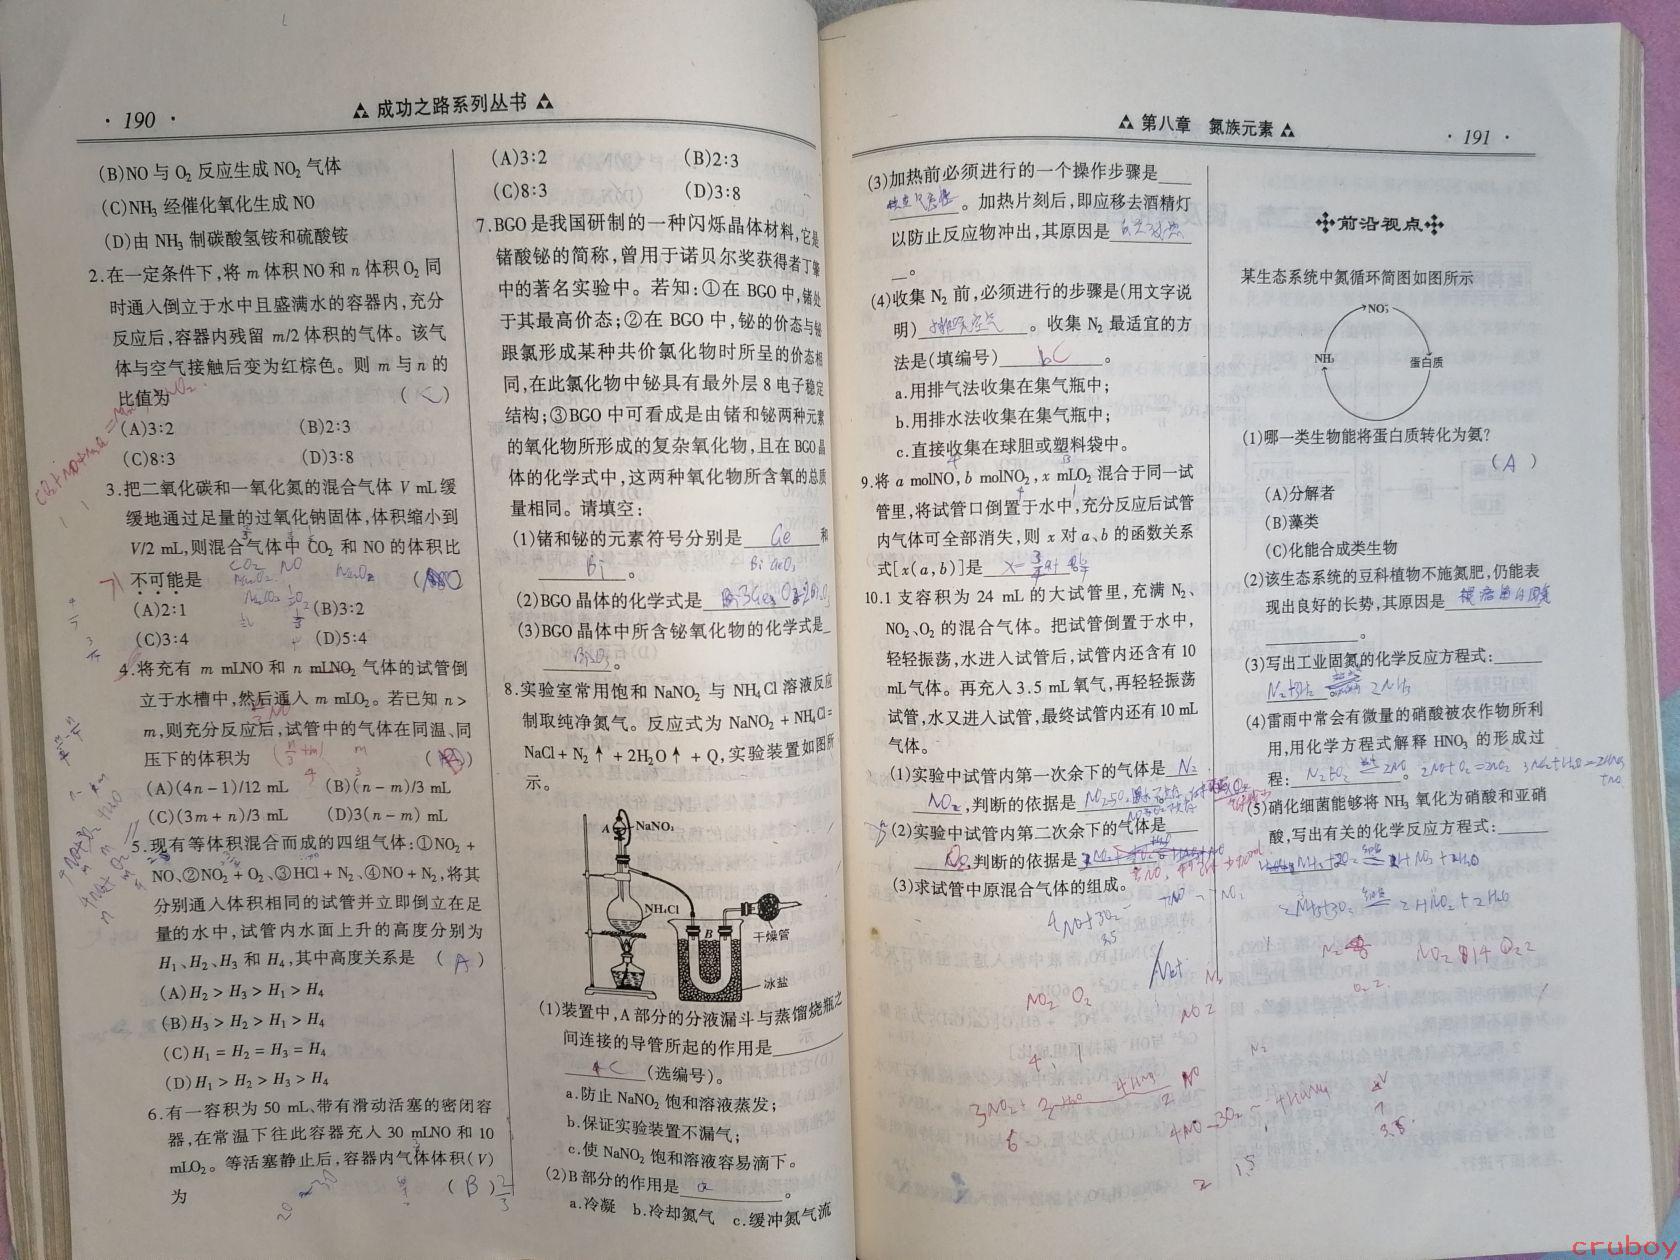 · 190 ·
成功之路系列丛书
(B)NO 与 O₂ 反应生成 NO₂ 气体
(C)NH₃ 经催化氧化生成 NO
(D)由 NH₃ 制碳酸氢铵和硫酸铵
2.在一定条件下,将 m 体积 NO 和 n 体积 O₂ 同
时通入倒立于水中且盛满水的容器内,充分
反应后,容器内残留 m/2 体积的气体。该气
体与空气接触后变为红棕色。则 m 与 n 的
比值为 ( C )
(A)3:2 (B)2:3
(C)8:3 (D)3:8
3.把二氧化碳和一氧化氮的混合气体 V mL 缓
缓地通过足量的过氧化钠固体,体积缩小到
V/2 mL,则混合气体中 CO₂ 和 NO 的体积比
不可能是
(A)2:1 (B)3:2
(C)3:4 (D)5:4
4.将充有 m mLNO 和 n mLNO₂ 气体的试管倒
立于水槽中,然后通入 m mLO₂。若已知 n >
m,则充分反应后,试管中的气体在同温、同
压下的体积为
(A)(4n-1)/12 mL (B)(n-m)/3 mL
(C)(3m+n)/3 mL (D)3(n-m) mL
5.现有等体积混合而成的四组气体:①NO₂ +
NO、②NO₂ + O₂、③HCl + N₂、④NO + N₂,将其
分别通入体积相同的试管并立即倒立在足
量的水中,试管内水面上升的高度分别为
H₁、H₂、H₃ 和 H₄,其中高度关系是 ( A )
(A)H₂ > H₃ > H₁ > H₄
(B)H₃ > H₂ > H₁ > H₄
(C)H₁ = H₂ = H₃ = H₄
(D)H₁ > H₂ > H₃ > H₄
6.有一容积为 50 mL、带有滑动活塞的密闭容
器,在常温下往此容器充入 30 mLNO 和 10
mLO₂。等活塞静止后,容器内气体体积(V)
为 ( B )
(A)3:2 (B)2:3
(C)8:3 (D)3:8
7.BGO 是我国研制的一种闪烁晶体材料,它是
锗酸铋的简称,曾用于诺贝尔奖获得者丁肇
中的著名实验中。若知:①在 BGO 中,锗处
于其最高价态;②在 BGO 中,铋的价态与铋
跟氯形成某种共价氯化物时所呈的价态相
同,在此氯化物中铋具有最外层 8 电子稳定
结构;③BGO 中可看成是由锗和铋两种元素
的氧化物所形成的复杂氧化物,且在 BGO 晶
体的化学式中,这两种氧化物所含氧的总质
量相同。请填空:
(1)锗和铋的元素符号分别是 Ge 和
Bi 。
(2)BGO 晶体的化学式是
(3)BGO 晶体中所含铋氧化物的化学式是
Bi₂O₃ 。
8.实验室常用饱和 NaNO₂ 与 NH₄Cl 溶液反应
制取纯净氮气。反应式为 NaNO₂ + NH₄Cl =
NaCl + N₂↑ + 2H₂O↑ + Q,实验装置如图所
示。
A
NaNO₂
NH₄Cl
B
干燥管
冰盐
(1)装置中,A 部分的分液漏斗与蒸馏烧瓶之
间连接的导管所起的作用是
C (选编号)。
a.防止 NaNO₂ 饱和溶液蒸发;
b.保证实验装置不漏气;
c.使 NaNO₂ 饱和溶液容易滴下。
(2)B 部分的作用是 a 。
a.冷凝 b.冷却氮气 c.缓冲氮气流
第八章 氮族元素
· 191 ·
(3)加热前必须进行的一个操作步骤是
检查气密性 。加热片刻后,即应移去酒精灯
以防止反应物冲出,其原因是
。
(4)收集 N₂ 前,必须进行的步骤是(用文字说
明) 排除空气 。收集 N₂ 最适宜的方
法是(填编号) bC 。
a.用排气法收集在集气瓶中;
b.用排水法收集在集气瓶中;
c.直接收集在球胆或塑料袋中。
9.将 a molNO, b molNO₂, x mLO₂ 混合于同一试
管里,将试管口倒置于水中,充分反应后试管
内气体可全部消失,则 x 对 a、b 的函数关系
式[x(a,b)]是
10.1 支容积为 24 mL 的大试管里,充满 N₂、
NO₂、O₂ 的混合气体。把试管倒置于水中,
轻轻振荡,水进入试管后,试管内还含有 10
mL气体。再充入 3.5 mL 氧气,再轻轻振荡
试管,水又进入试管,最终试管内还有 10 mL
气体。
(1)实验中试管内第一次余下的气体是 N₂
NO₂,判断的依据是
(2)实验中试管内第二次余下的气体是
O₂,判断的依据是
(3)求试管中原混合气体的组成。
前沿视点
某生态系统中氮循环简图如图所示
NO₃⁻
NH₃
蛋白质
(1)哪一类生物能将蛋白质转化为氨?
( A )
(A)分解者
(B)藻类
(C)化能合成类生物
(2)该生态系统的豆科植物不施氮肥,仍能表
现出良好的长势,其原因是
。
(3)写出工业固氮的化学反应方程式:
(4)雷雨中常会有微量的硝酸被农作物所利
用,用化学方程式解释 HNO₃ 的形成过
程:
(5)硝化细菌能够将 NH₃ 氧化为硝酸和亚硝
酸,写出有关的化学反应方程式:
NO₂ O₂
cruboy